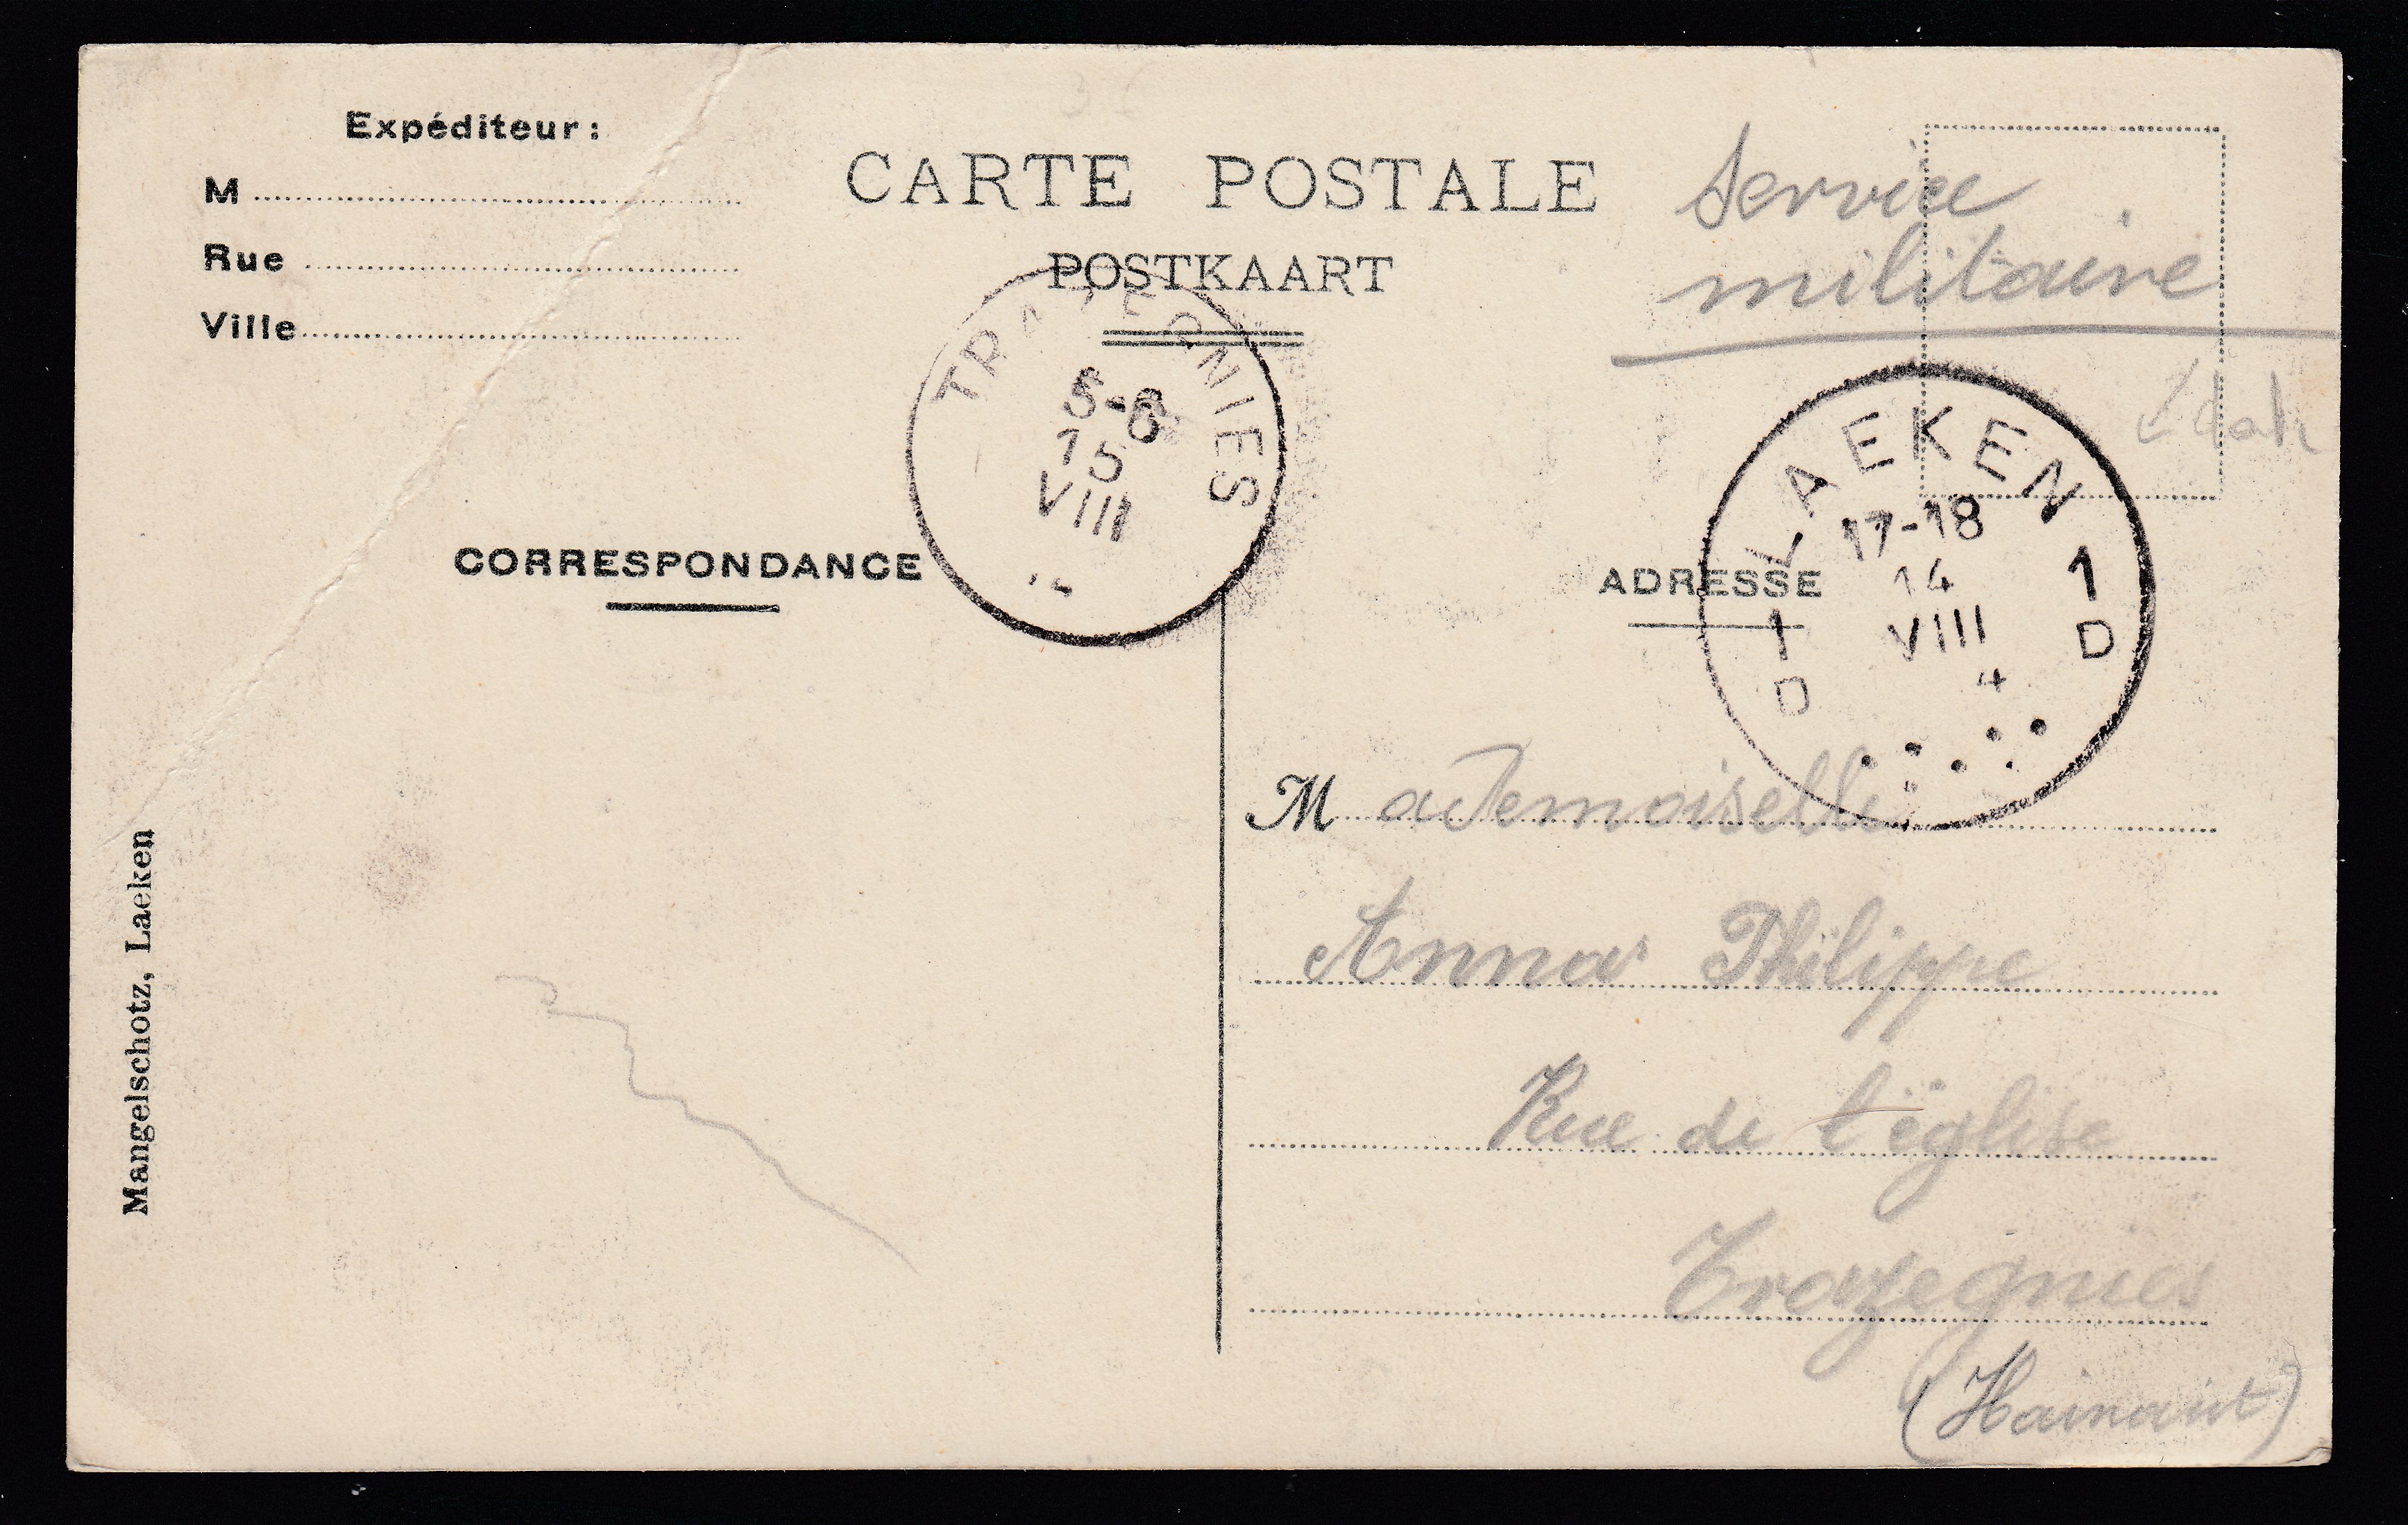 Expéditeur :
M
Rue
Ville
CARTE POSTALE
POSTKAART
Service
militaire
TRAZEGNIES
5-6
15
VIII
LAEKEN
17-18
14
VIII
4
1 D
1 D
CORRESPONDANCE
ADRESSE
Mademoiselle
Anna Philippe
Rue de l'église
Trazegnies
(Hainaut)
Mangelschotz, Laeken